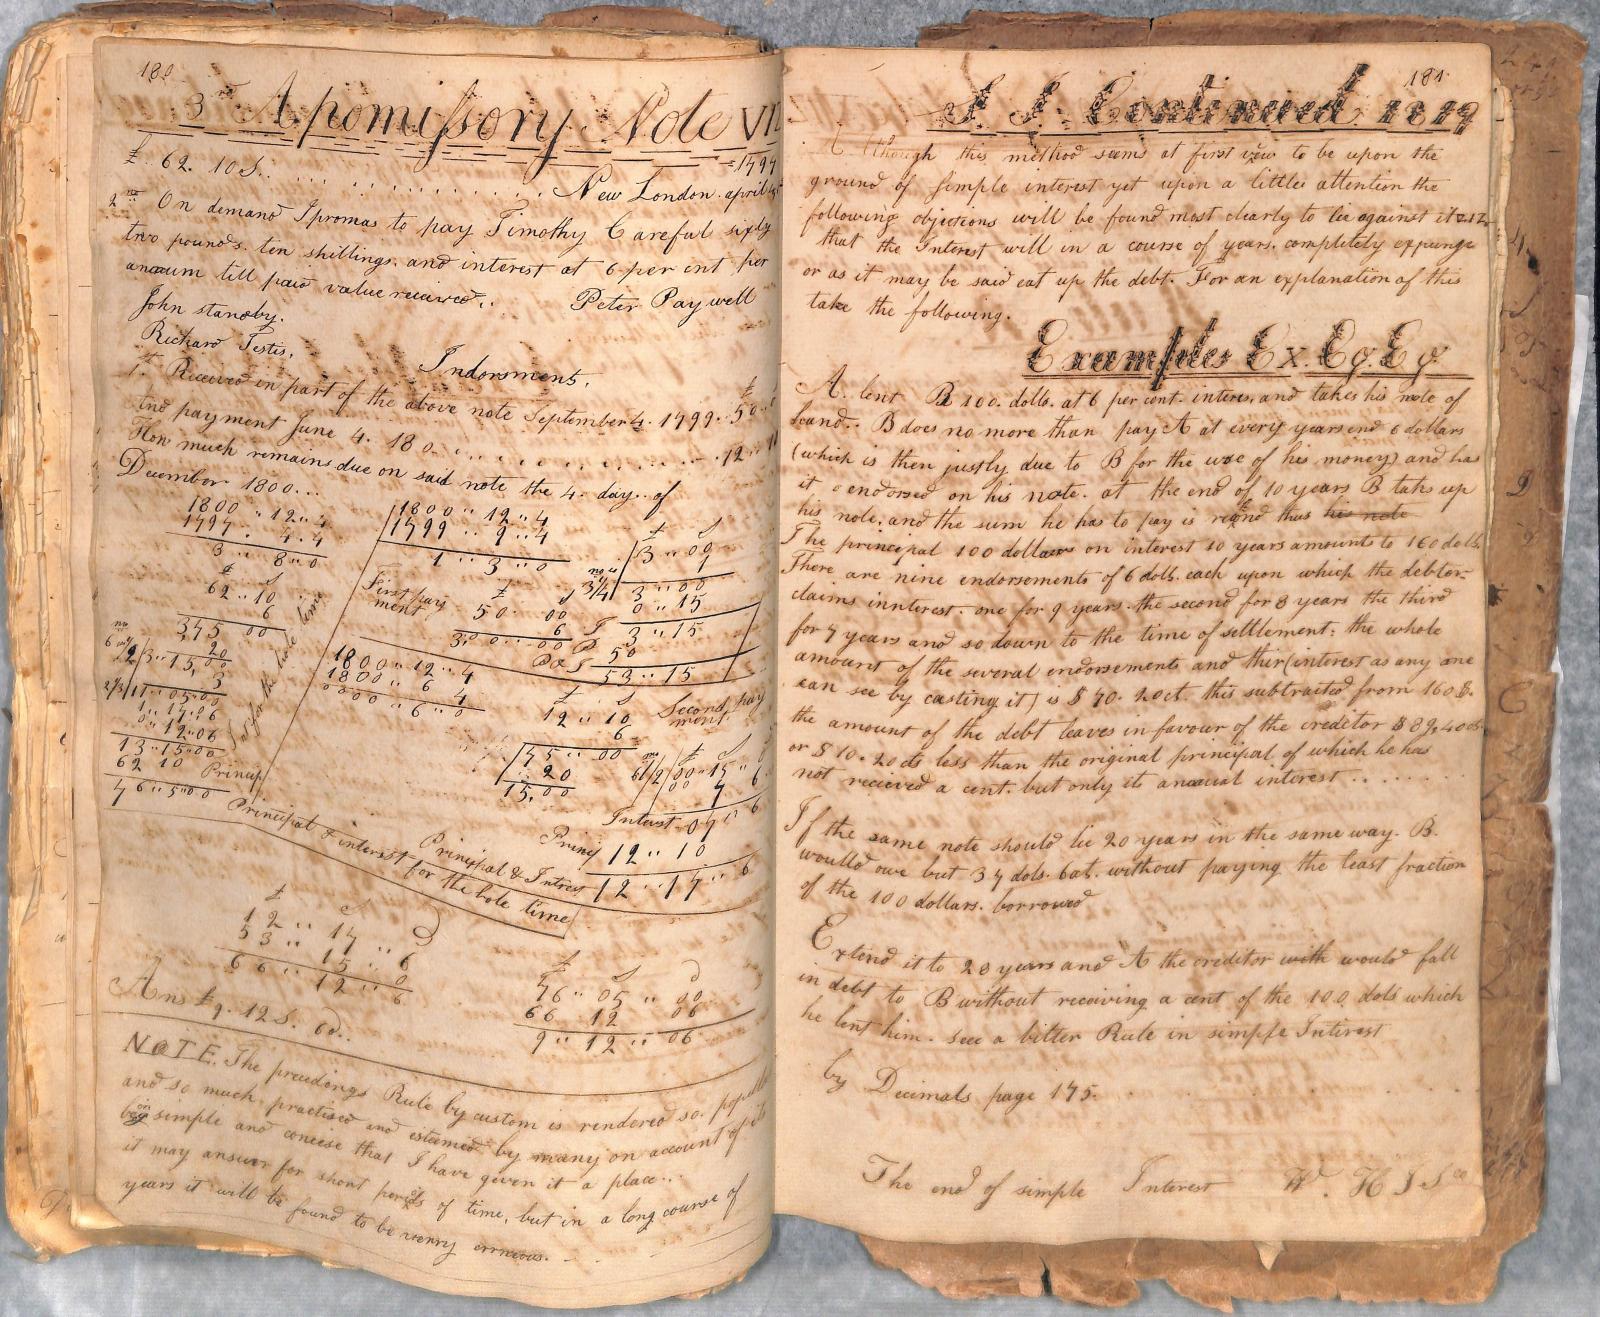 180
3rd A promissory Note VII
£ 62. 10 S. New London. april
=1797
2nd On demand I promas to pay Timothy Careful sixty
two pounds. ten shillings. and interest at 6 per cent per
annum till paid value received.. Peter Paywell
John standby.
Richard Testis.
Indorsment.
1st. Received in part of the above note September 4. 1799. 50
2nd payment June 4. 180 12
How much remains due on said note the 4. day. of
December 1800...
1800 " 12 " 4
1797 . 4 . 4
3 " 8 " 0
£ S
62 " 10
6
375 00
20
6 2/3 " 15,00
3
2/3/11 " 05 " 0
1 " 17 " 06
0 " 12 " 06
13 " 15 " 00
62 10 Princip
76 " 5 " 00
Int for the hole time
Principal & interest for the hole time
1800 " 12 " 4
1799 " 9 " 4
1 " 3 " 0
First pay
ment
£ S
50 " 00
6
3,00 " 00
£ S
3 " 00
1
3/4 3 " 00
0 " 15
I 3 " 15
P 50
P&I 53 " 15
1800 " 12 " 4
1800 " 6 4
0000 " 6 " 0
Second pay
ment
£ S
12 " 10
6
75 " 00
20
15,00
£ S
6/2 00 " 15 "
00 7 6
Interst 07 " 6
Princip 12 " 10
Principal & Intrest 12 " 17 " 6
£ S D
12 " 17 " 6
53 " 15 " 0
66 " 12 " 6
£ S D
76 " 05 " 00
66 12 06
9 " 12 " 06
Ans £ 9. 12 S. 6 D.
NOTE. The preedings Rule by custom is rendered so.
and so much practised and esteemed by many on account of its
being simple and conceese that I have given it a place...
it may answer for short periods of time, but in a long course of
years it will be found to be verry erroneous.
181
S I Continued 1817
Although this method seems at first view to be upon the
ground of simple interest yet upon a little attention the
following objections will be found most clearly to lie against it viz
that the Interest will in a course of years. completely expunge
or as it may be said eat up the debt. For an explanation of this
take the following.
Examples Ex. Eg. Eg.
A. lent B 100. dolls. at 6 per cent. interes, and takes his note of
hand.. B does no more than pay A at every years end 6 dollars
(which is then justly due to B for the use of his money) and has
it endorsed on his note. at the end of 10 years B takes up
his note. and the sum he has to pay is thus his note
The principal 100 dollars on interest 10 years amounts to 160 dolls.
There are nine endorsements of 6 dolls. each upon which the debtor
claims innterest. one for 9 years. the second for 8 years the third
for 7 years and so down to the time of settlement: the whole
amount of the several endorsements and thir (interest as any one
can see by casting it) is $ 70. 20ct. this subtracted from 160 $.
the amount of the debt leaves in favour of the creditor $ 89,40
or $ 10. 20 cts less than the original principal of which he has
not recieved a cent. but only its annual interest
If the same note should lie 20 years in the same way. B.
would owe but 37 dols. 6ct. without paying the least fraction
of the 100 dollars. borrowed
Extend it to 28 years and A the creditor with would fall
in debt to B without receiving a cent of the 100 dols which
he lent him. See a bitter Rule in simple Interest
by Decimals page 175.
The end of simple Interest W. H J S